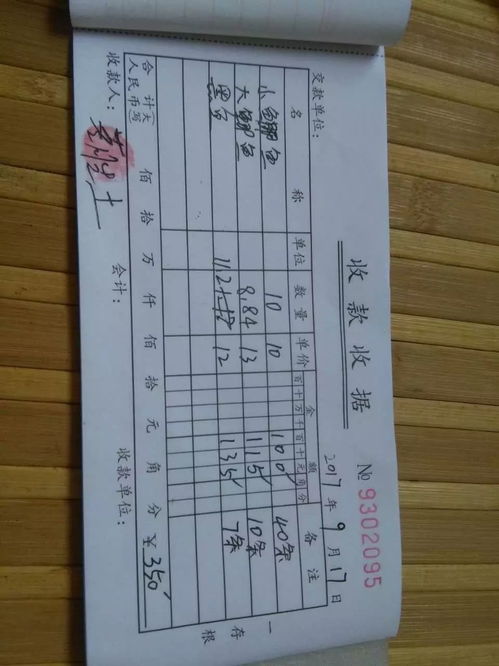 收款收据
№ 9302095
2017年9月17日
交款单位：
名称 单位 数量 单价 金额 备注
百十万千百十元角分
小鳊鱼 10 10 100 40条
大鳊鱼 8.84 13 115 10条
11.2 12 135 7条
合计人民币(大写) 佰 拾 万 仟 佰 拾 元 角 分 ￥350
收款人： 会计： 收款单位：
一存根